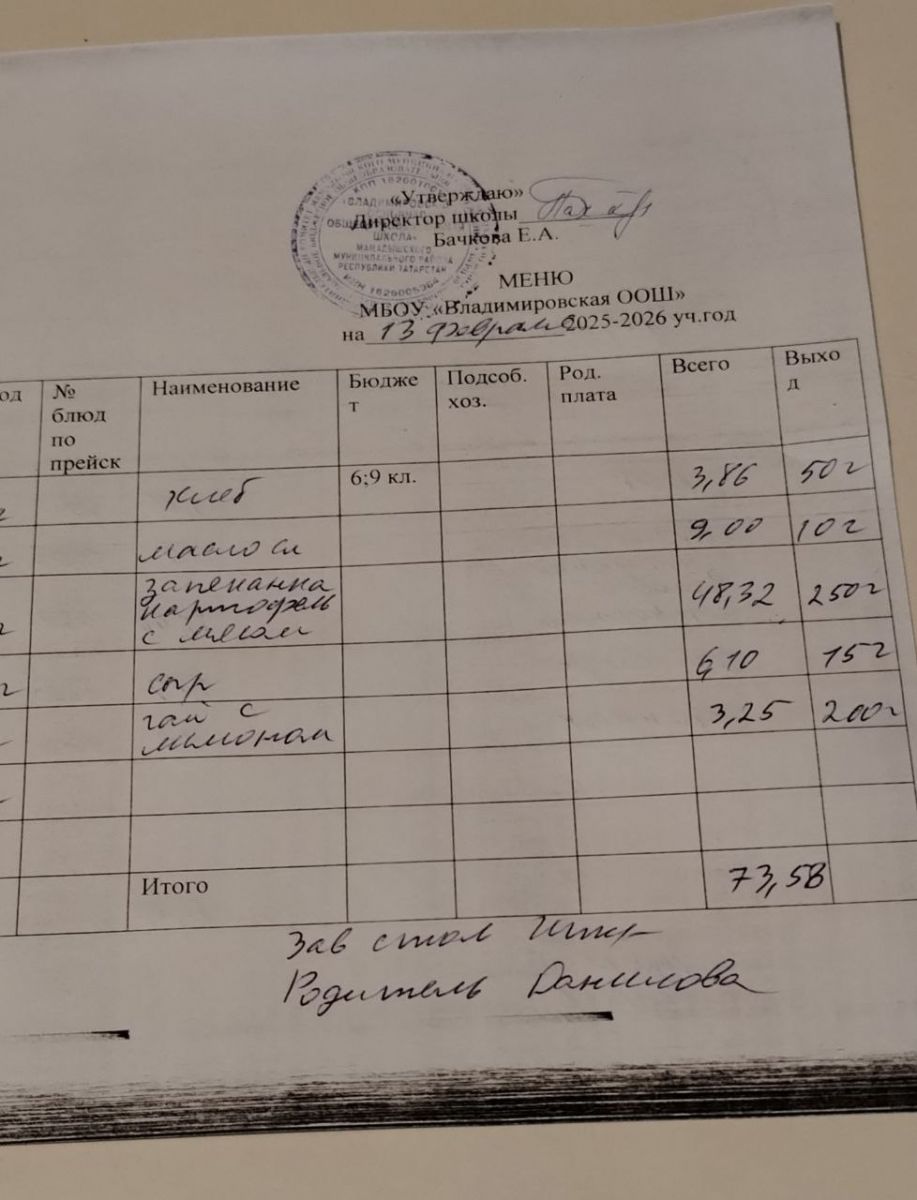 «Утверждаю»
Директор школы
Бачкова Е.А.
КПП 16260100
ВЛАДИМИРОВСКАЯ
ШКОЛА»
МАМАДЫШСКОГО
МУНИЦИПАЛЬНОГО РАЙОНА
РЕСПУБЛИКИ ТАТАРСТАН
ИНН 1626005364
МЕНЮ
МБОУ «Владимировская ООШ»
на 13 февраля 2025-2026 уч.год
од № блюд по прейск Наименование Бюджет Подсоб. хоз. Род. плата Всего Выход
хлеб 6;9 кл. 3,86 50г
масло сл 9,00 10г
запеканка
картофель
с мясом 48,32 250г
сыр 6,10 15г
чай с
лимоном 3,25 200г
Итого 73,58
Зав стол
Родитель Данилова